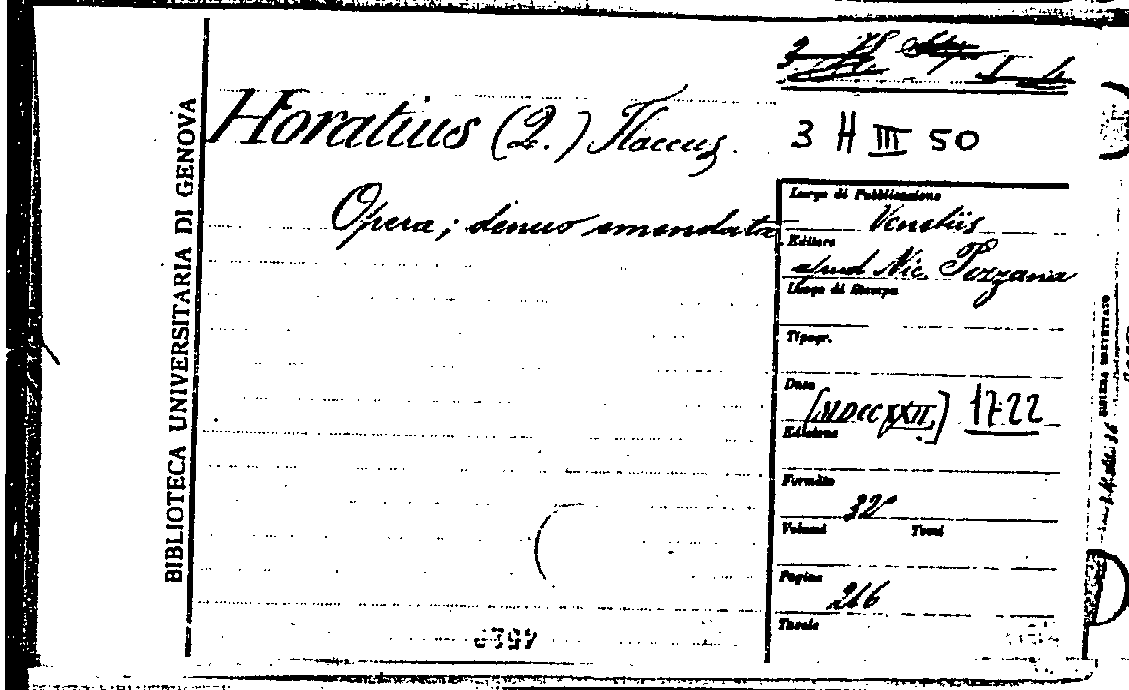 BIBLIOTECA UNIVERSITARIA DI GENOVA
Horatius (Q.) Flaccus.
Opera; denuo emendata
3 H III 50
Luogo di Pubblicazione
Venetiis
Editore
apud Nic. Pezzana
Luogo di Stampa
Tipogr.
Data
[MDCCXXII] 1722
Edizione
Formato
32°
Volumi Tomi
Pagine
216
Tavole